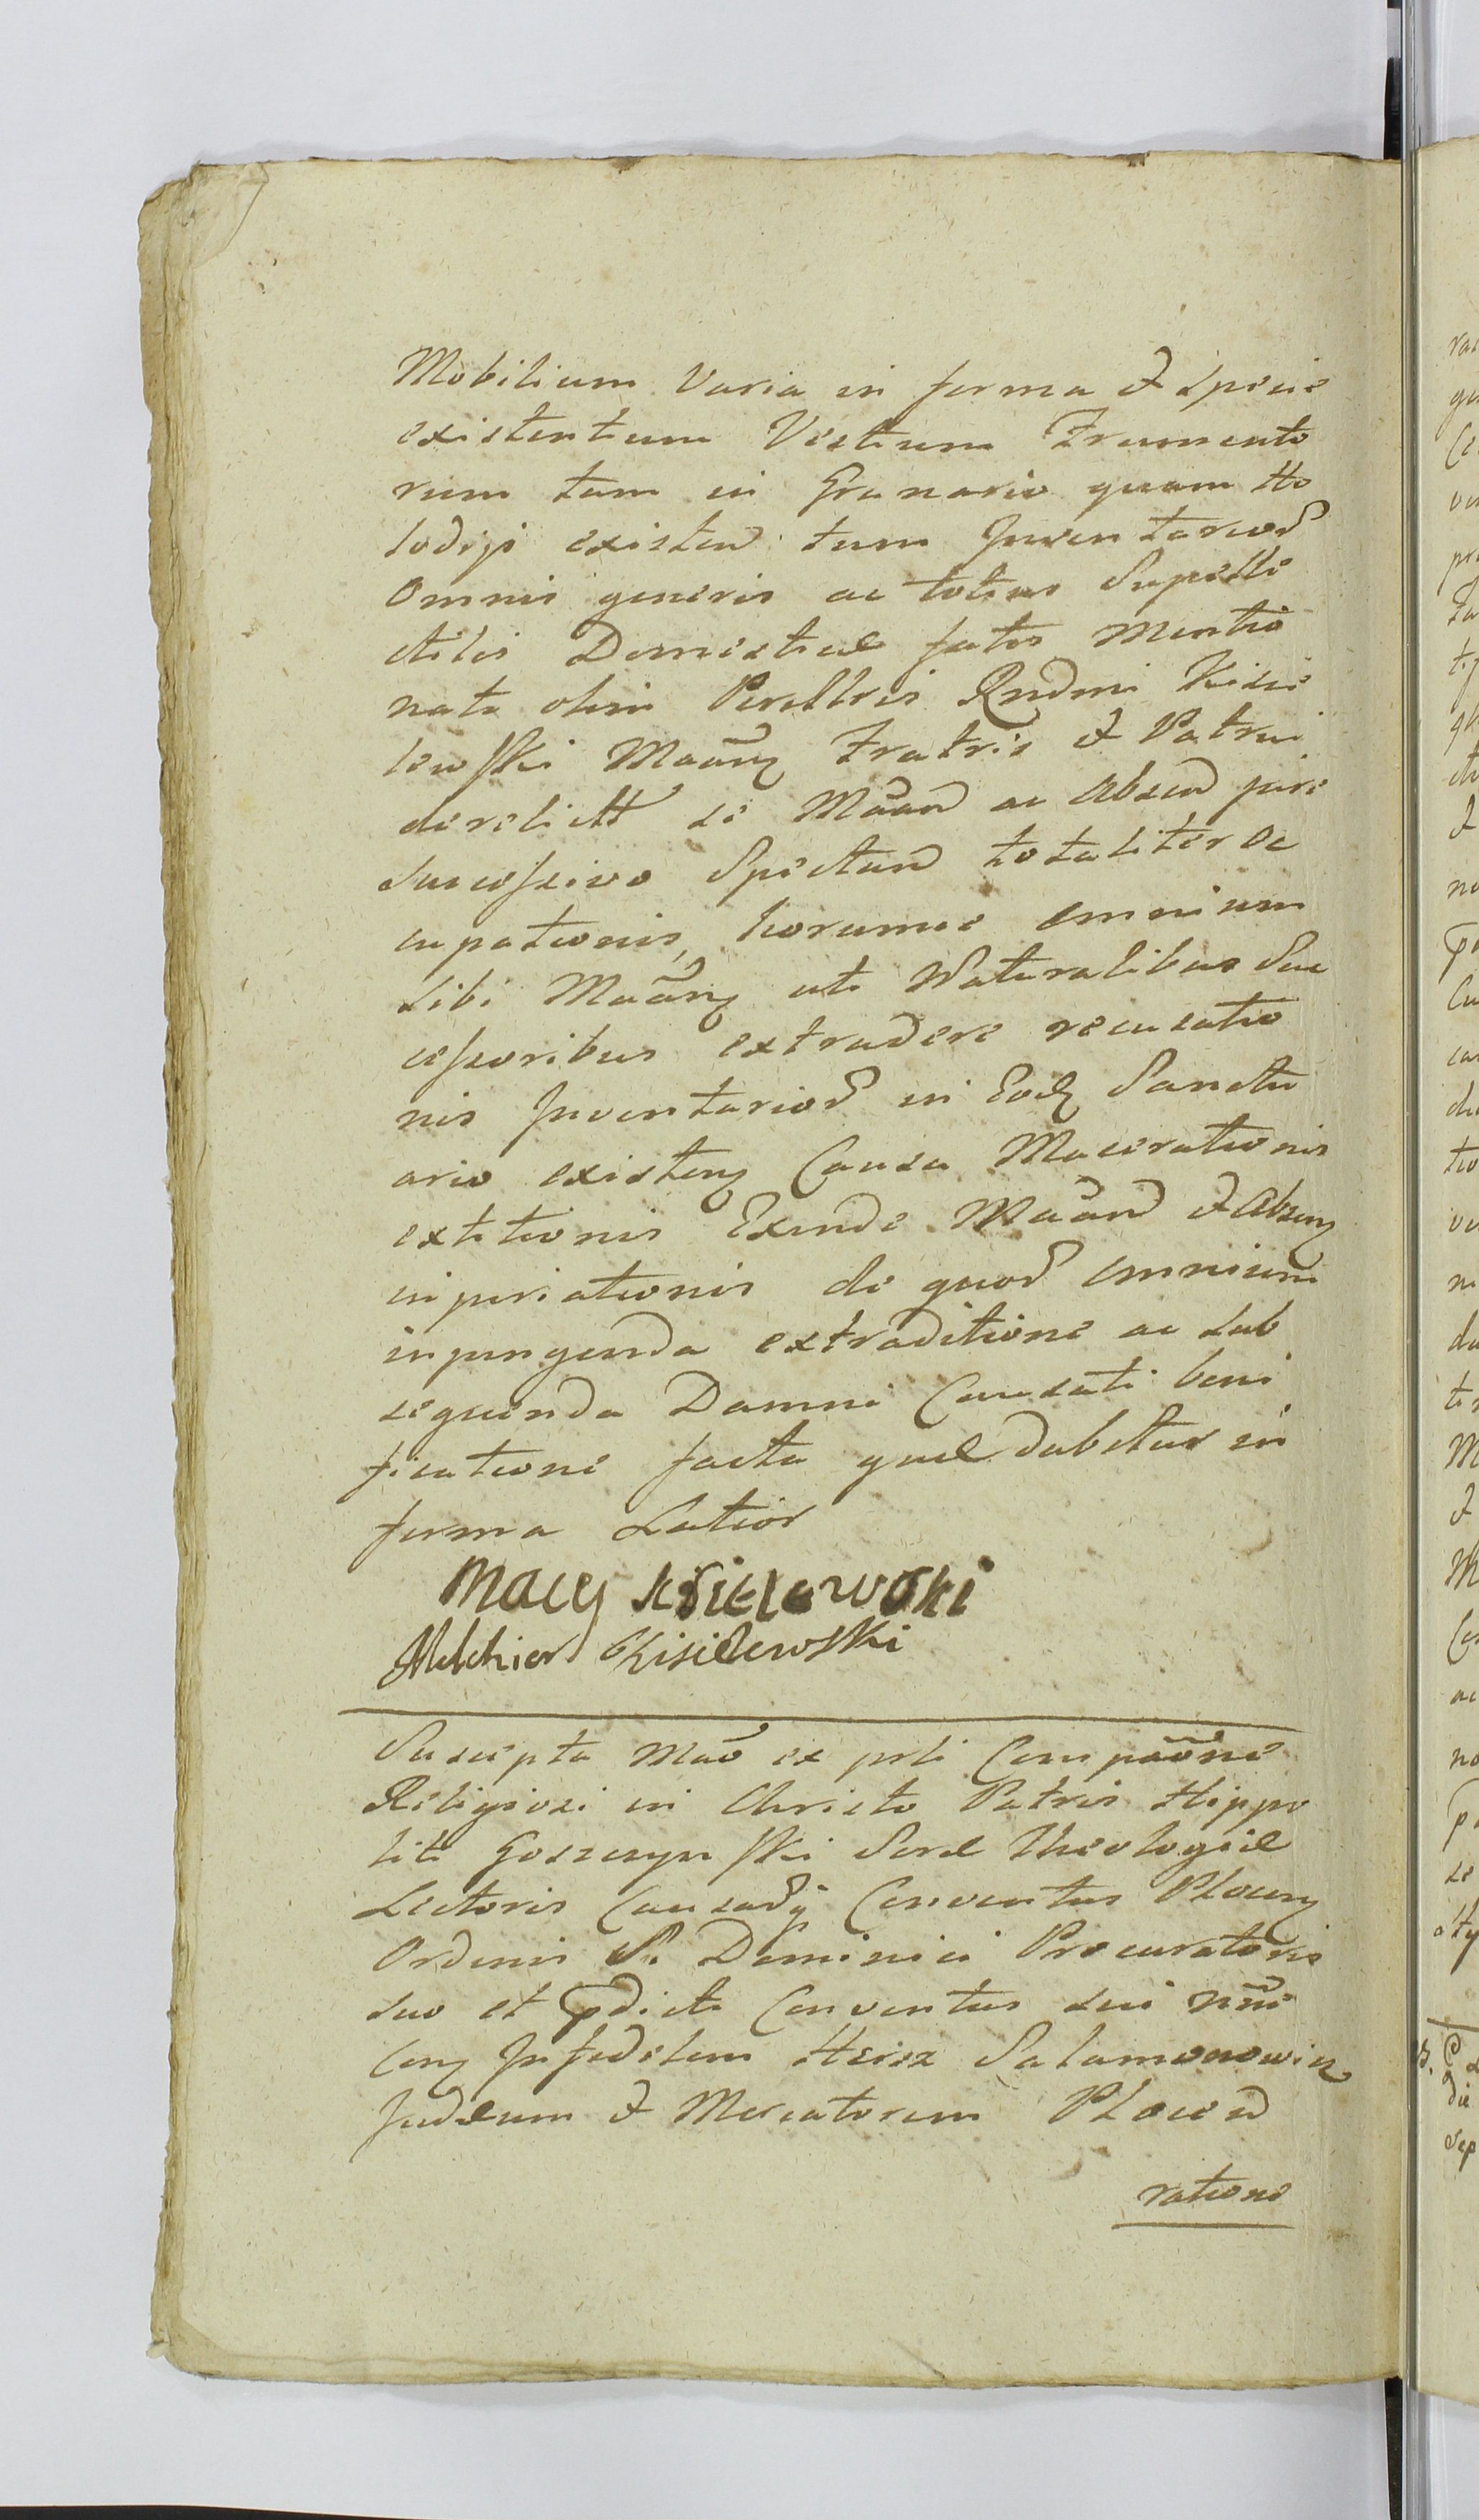 Mobilium Varia in forma & Specie
existentium Vestium Frumento
rum tam in Granario quam Ho
lodiji existen: tum Inventarior
Omnis generis ac totius Supelle
ctilis Domesticae fatis Mentio
nati olim Perillris Rndmi Kisie
lewski Maãnq Fratris & Patrui
derelictt se Maãn ac Absen jure
Successivo Spectan totaliter oc
cupationis, horumve omnium
Sibi Maãnq uti Naturalibus Suc
cessoribus extradere recusatio
nis Inventarior in Eodq Sanctu
ario existenq Causa Macerationis
extitionis Exinde Maãn & Absenq
injuriationis de quor omnium
injungenda extraditione ac sub
sequenda Damni Causati boni
ficatione facta quae dabitur in
forma Latior
Macy Kisielewski
Melchior Kisielewski
Suscepta Mão ex prli Compaõne
Religiosi in Christo Patris Hippo
liti Goszczynski Sorae Theologiae
Lectoris Causarq Conventus Plocenq
Ordinis S. Dominici Procuratoris
suo et pdicti Conventus sui nñe
Conq Infidelem Hersz Salamonowicz
Judaeum & Mercatorem Plocen
ratione